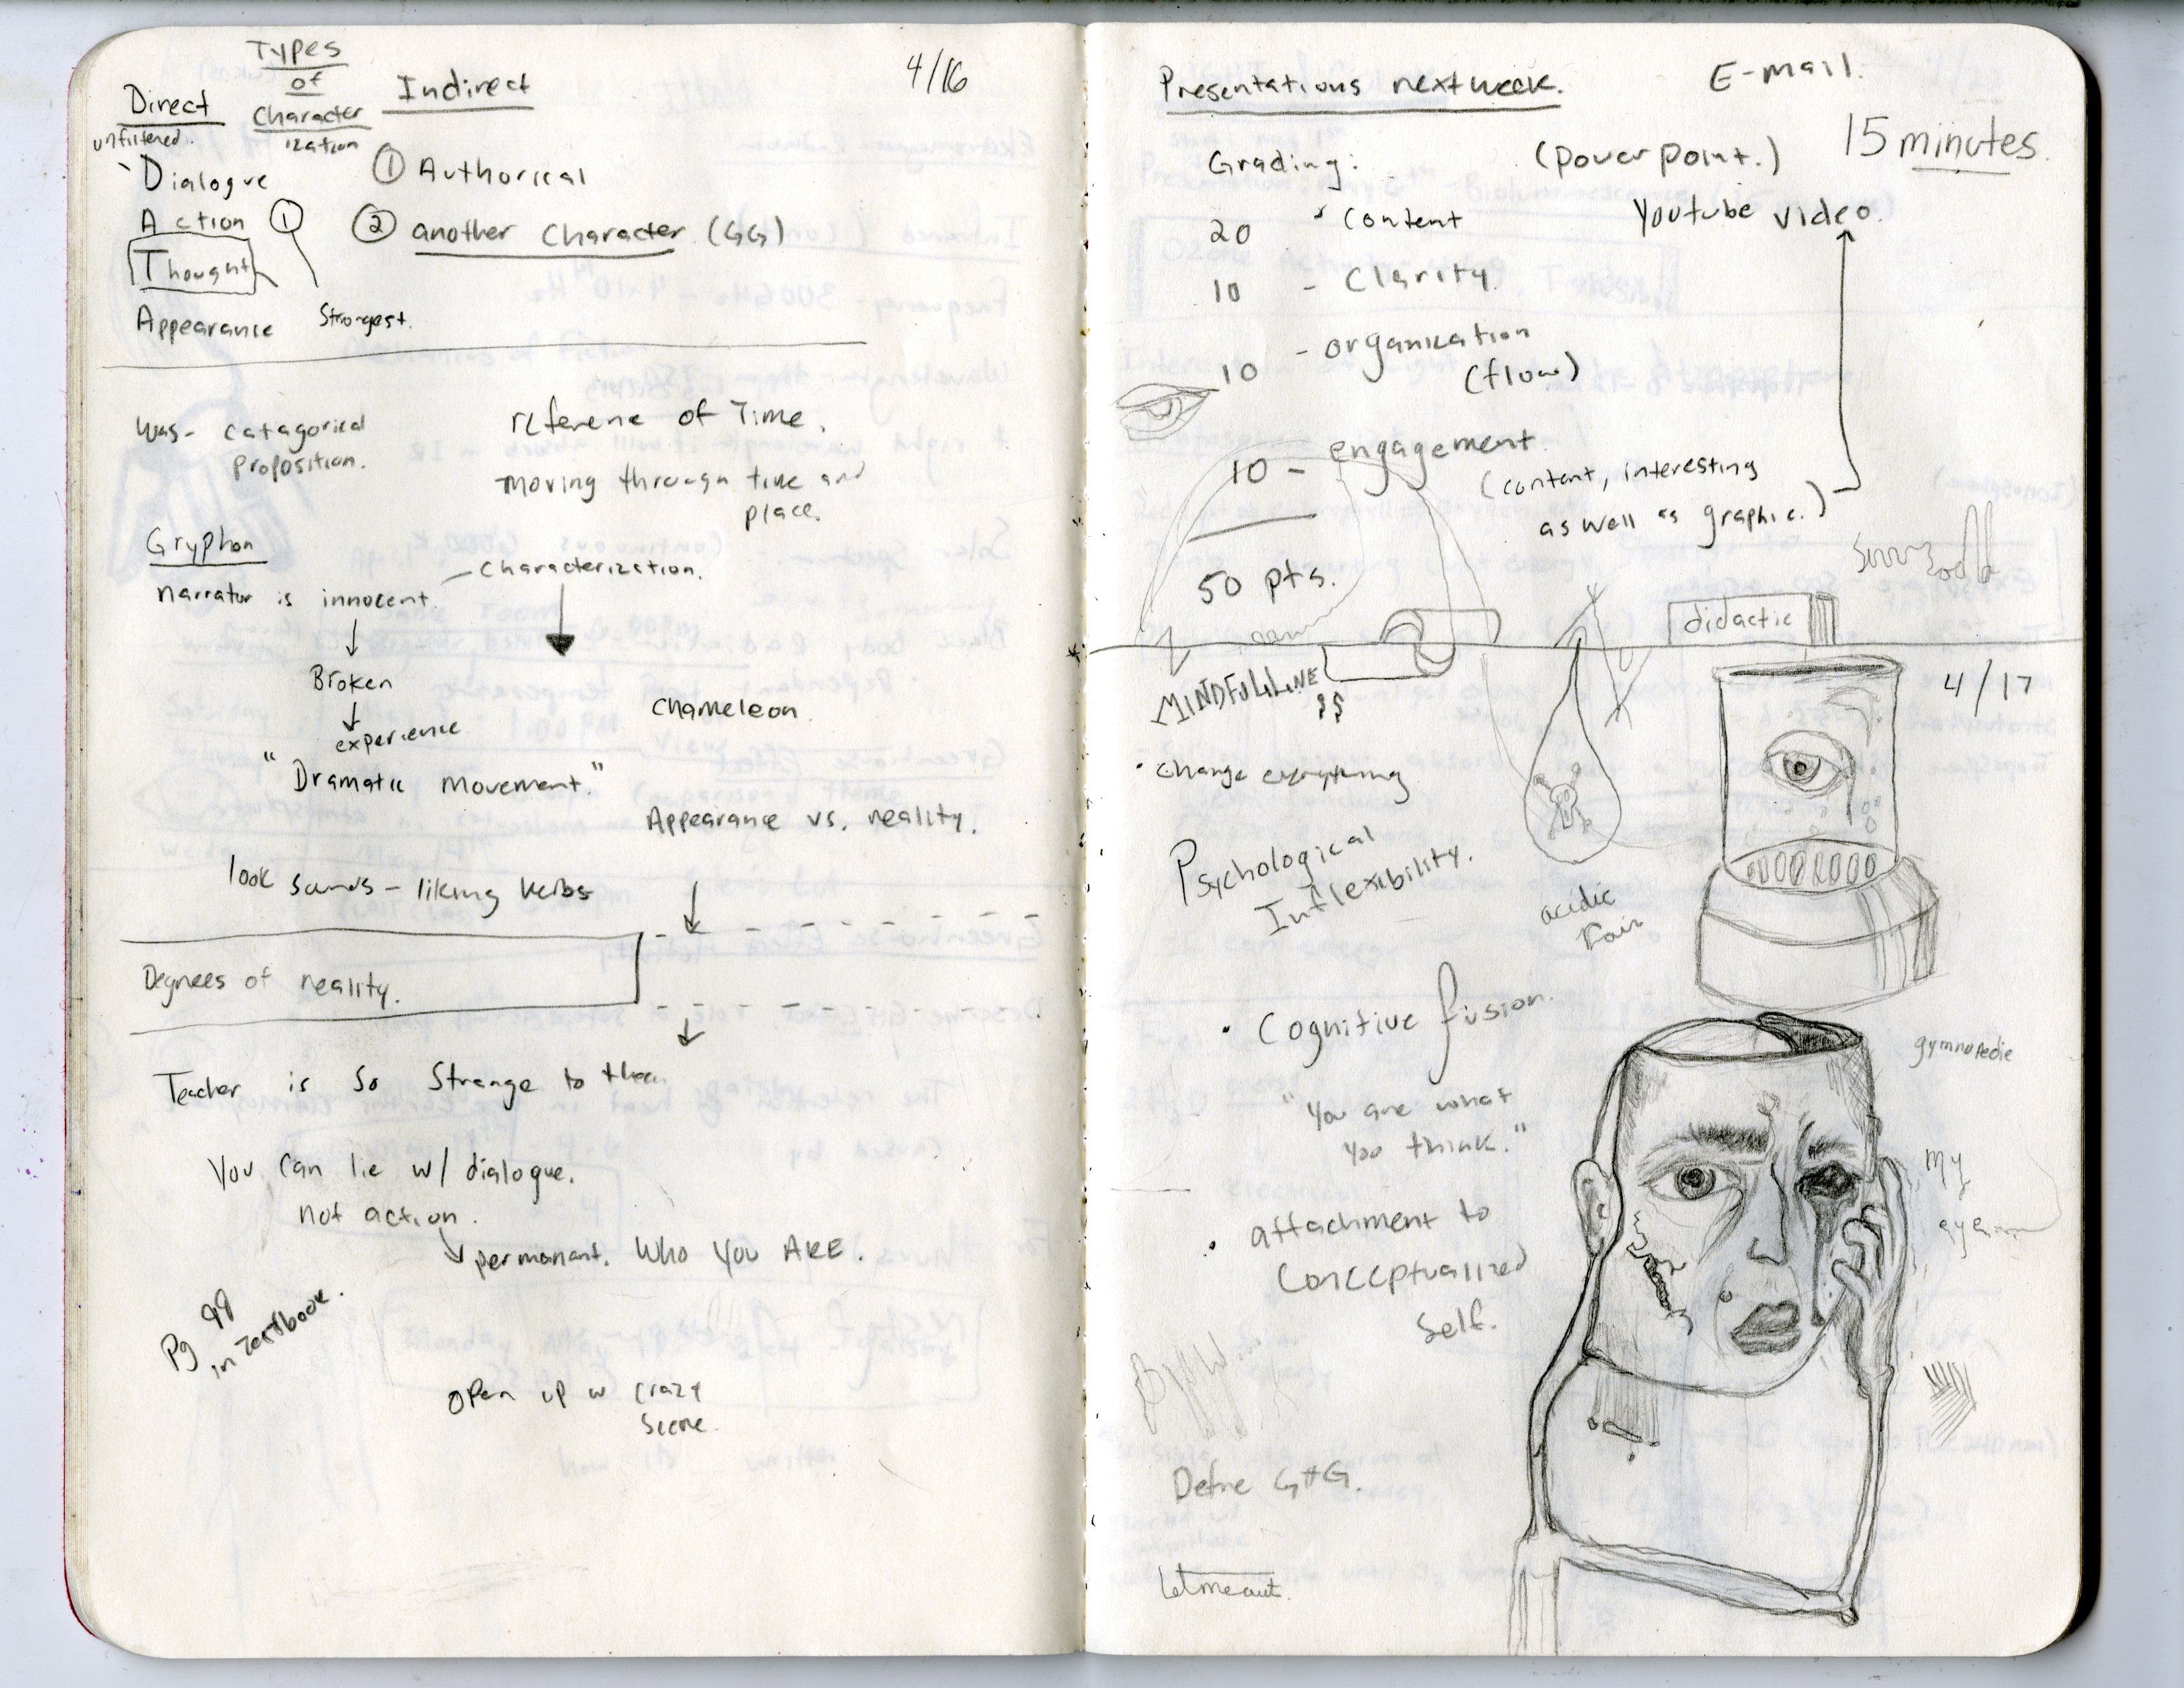 Types
of
Character
ization
Direct
unfiltered.
Dialogue
Action ①
Thought
Appearance
Strongest.
Indirect
① Authorical
② another Character (GG)
4/16
Was- catagorical
proposition.
reference of Time.
moving through time and
place.
Gryphon
narrator is innocent.
Broken
experience
"Dramatic movement."
- Characterization.
Chameleon
Appearance vs. reality.
look sounds - liking verbs
Degrees of reality.
Teacher is so strange to them
You can lie w/ dialogue.
not action.
permanant. Who You ARE.
Pg 99
in Textbook.
open up w crazy
scene.
Presentations next week.
E-mail.
15 minutes.
Grading:
(powerpoint.)
Youtube video.
20 - Content
10 - Clarity.
10 - organization
(flow)
10 - engagement
(content, interesting
as well as graphic.)
50 pts.
didactic
4/17
• change everything
Psychological
Inflexibility.
acidic
• Cognitive fusion.
"You are what
you think."
• attachment to
Conceptualized
self.
gymnopedie
My
eye
Define GHG.
let me out.